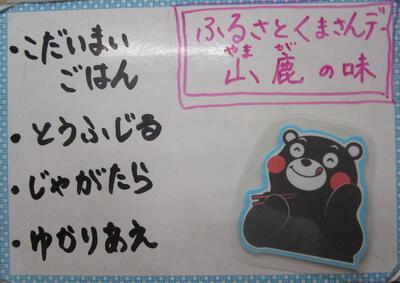 ふるさとくまさんデー
やまが
山鹿の味
・こだいまい
ごはん
・とうふじる
・じゃがたら
・ゆかりあえ